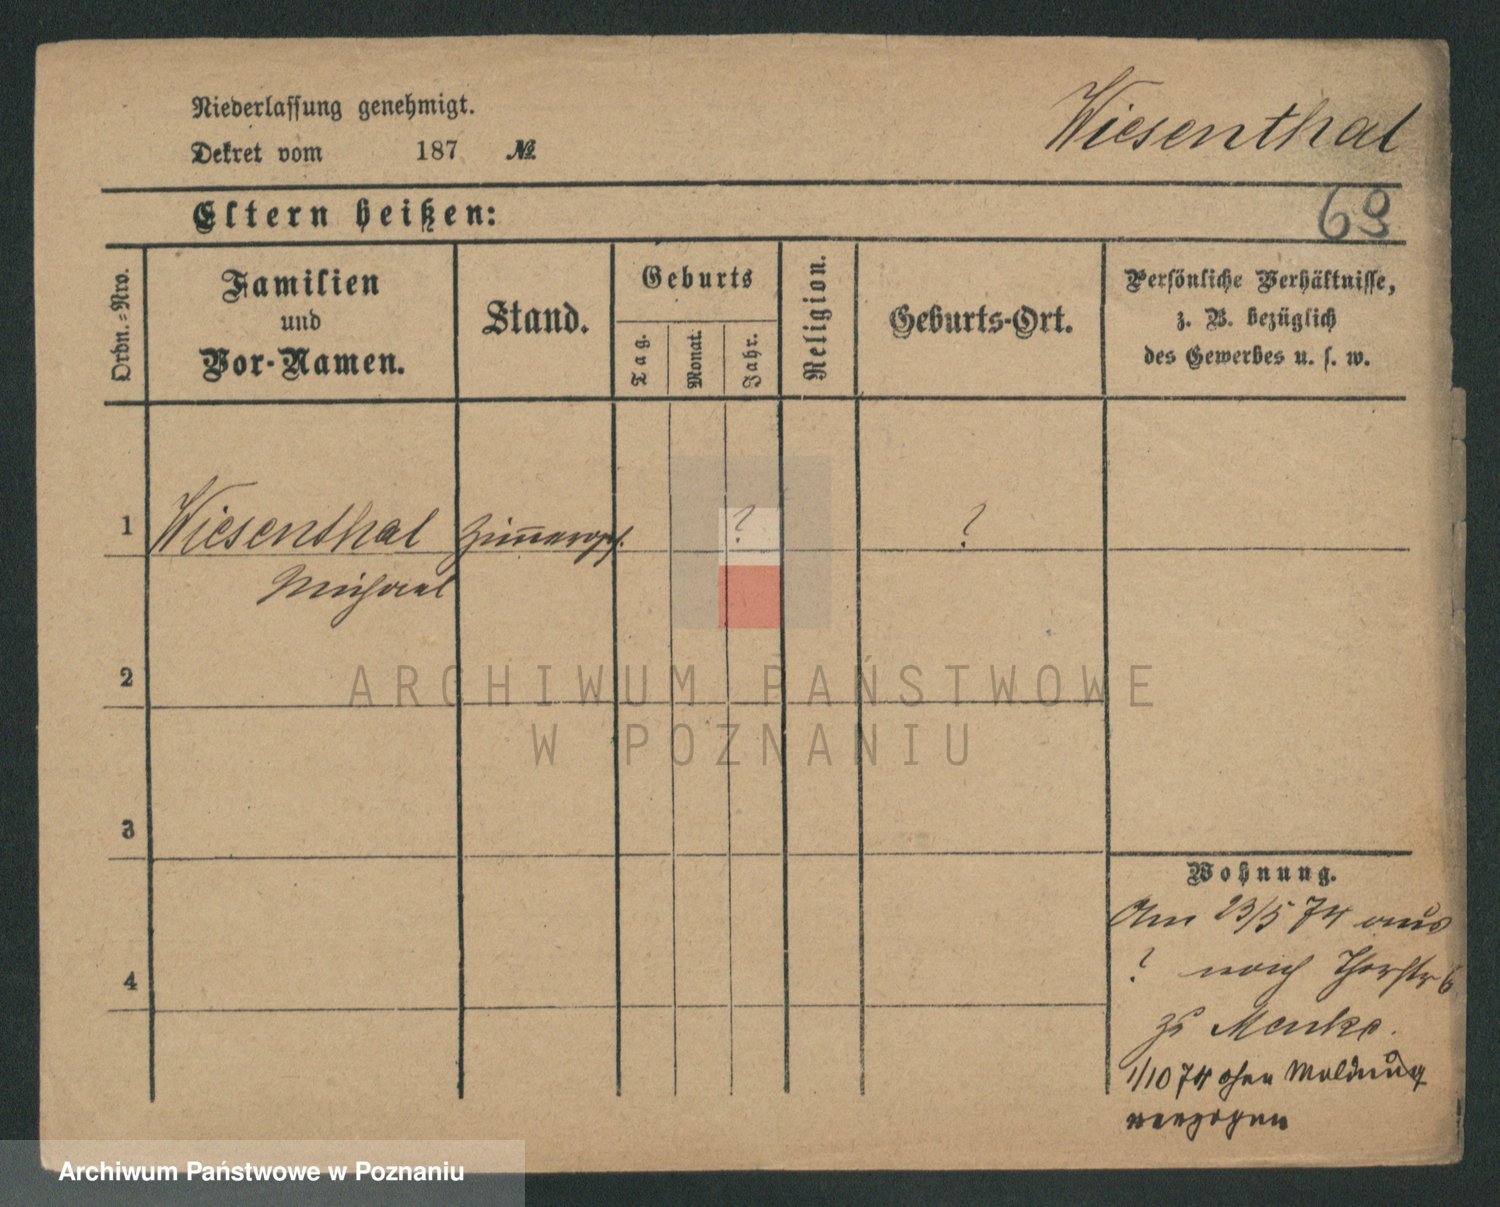 Niederlassung genehmigt.
Wiesenthal
Dekret vom 187 №
Eltern heißen:
69
Ordn.-Nro.
Familien
und
Vor-Namen.
Stand.
Geburts
Tag.
Monat.
Jahr.
Religion.
Geburts-Ort.
Persönliche Verhältnisse,
z. B. bezüglich
des Gewerbes u. s. w.
1 Wiesenthal ? ?
Michael
2
3
4
Wohnung.
Am 23/5 74 aus
? nach Thorstr 6
zu Menke.
1/10 74 ohne Meldung
verzogen
ARCHIWUM PAŃSTWOWE
W POZNANIU
Archiwum Państwowe w Poznaniu